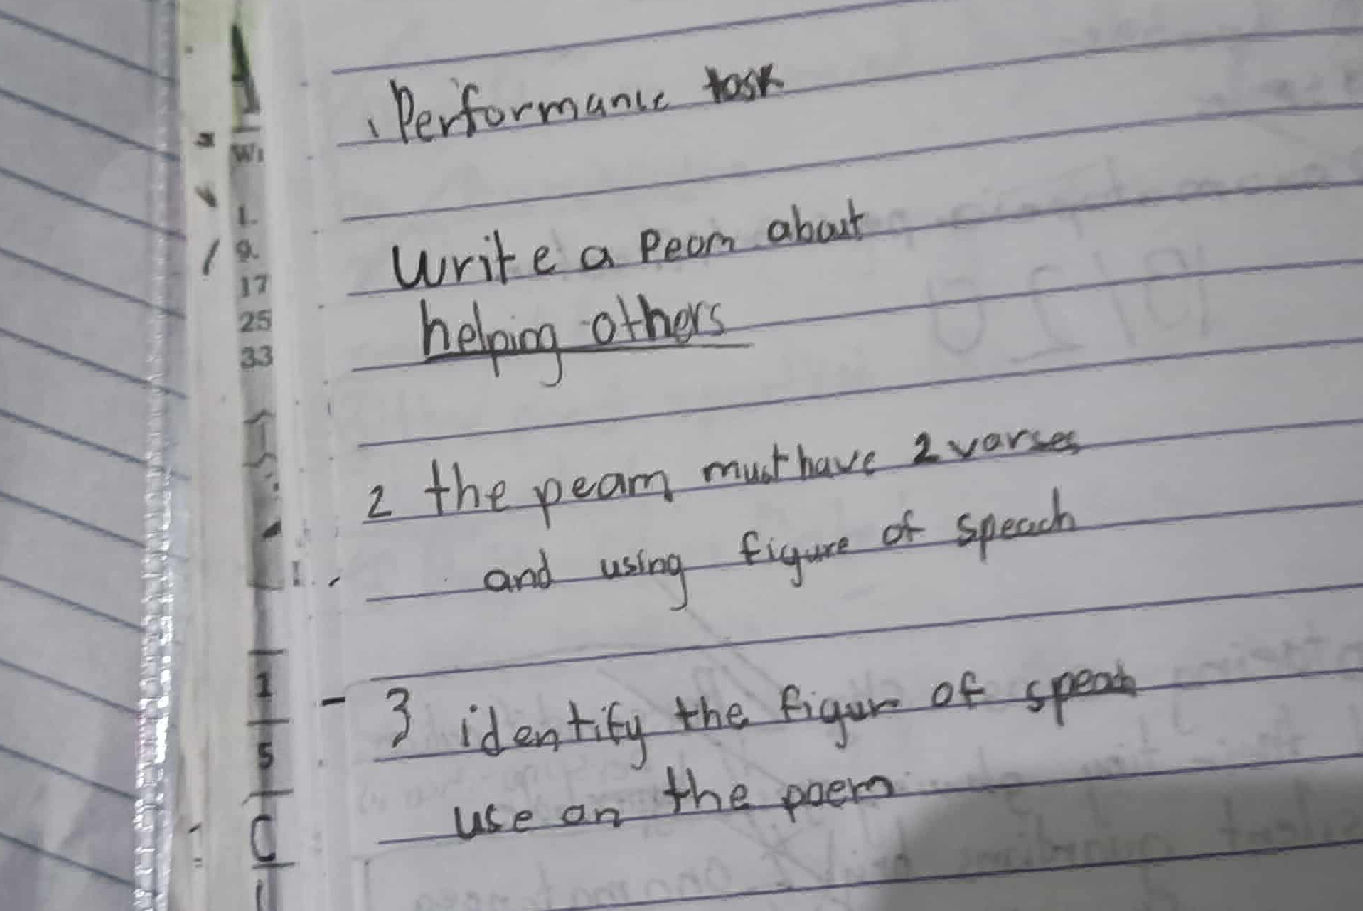 1 Performance task
Write a Peom about
helping others
2 the peam must have 2 varses
and using figure of speach
3 identify the figur of speach
use on the poem
W
1.
9.
17
25
33
1
5